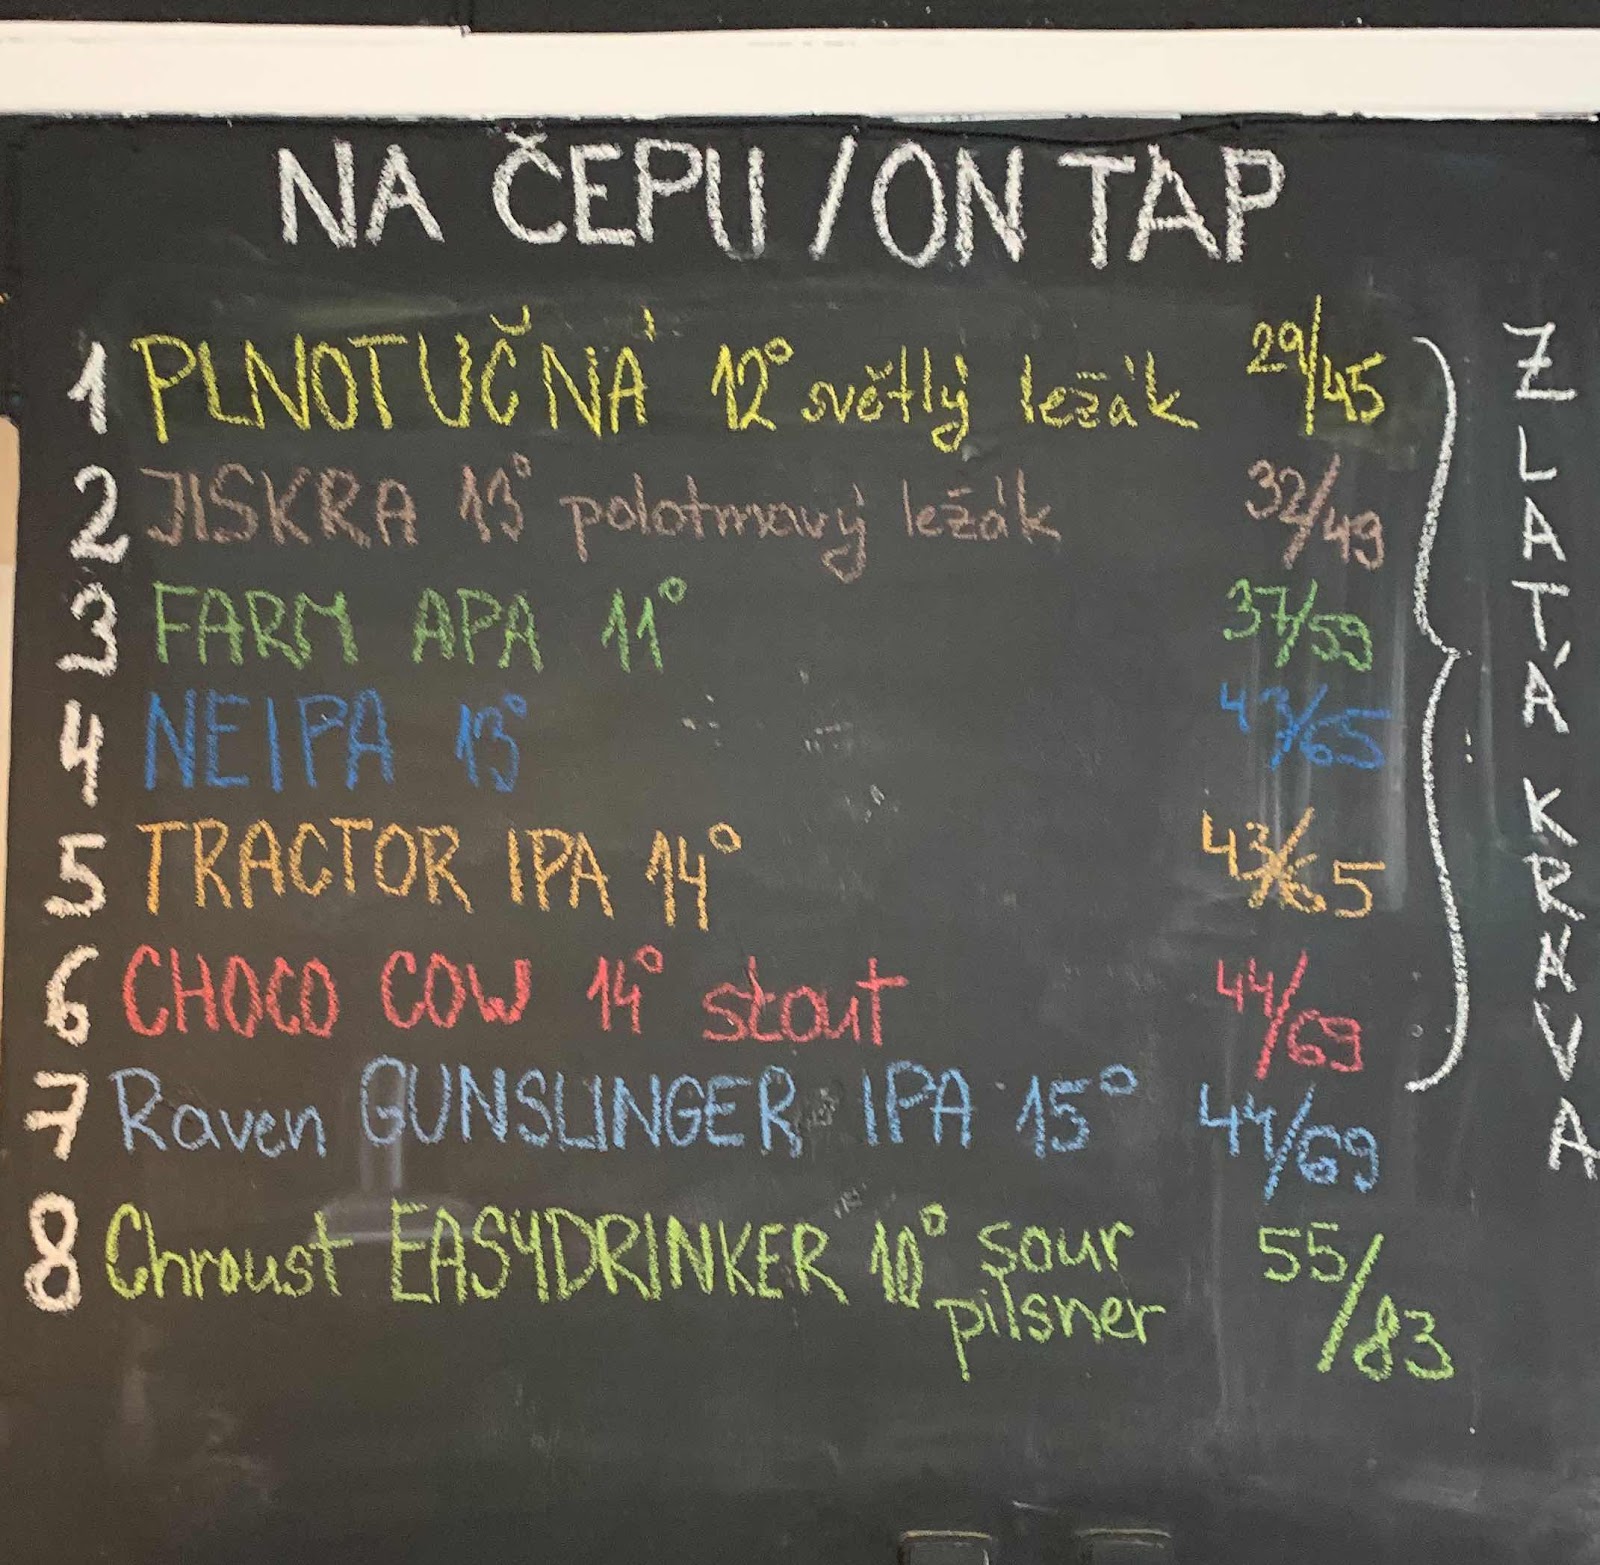 NA ČEPU / ON TAP
1 PLNOTUČNÁ 12° světlý ležák 29/45
2 JISKRA 13° polotmavý ležák 32/49
3 FARM APA 11° 37/59
4 NEIPA 13° 43/65
5 TRACTOR IPA 14° 43/65
6 CHOCO COW 14° stout 44/69
7 Raven GUNSLINGER IPA 15° 44/69
8 Chroust EASYDRINKER 10° sour
pilsner 55/83
ZLATÁ KRAVA